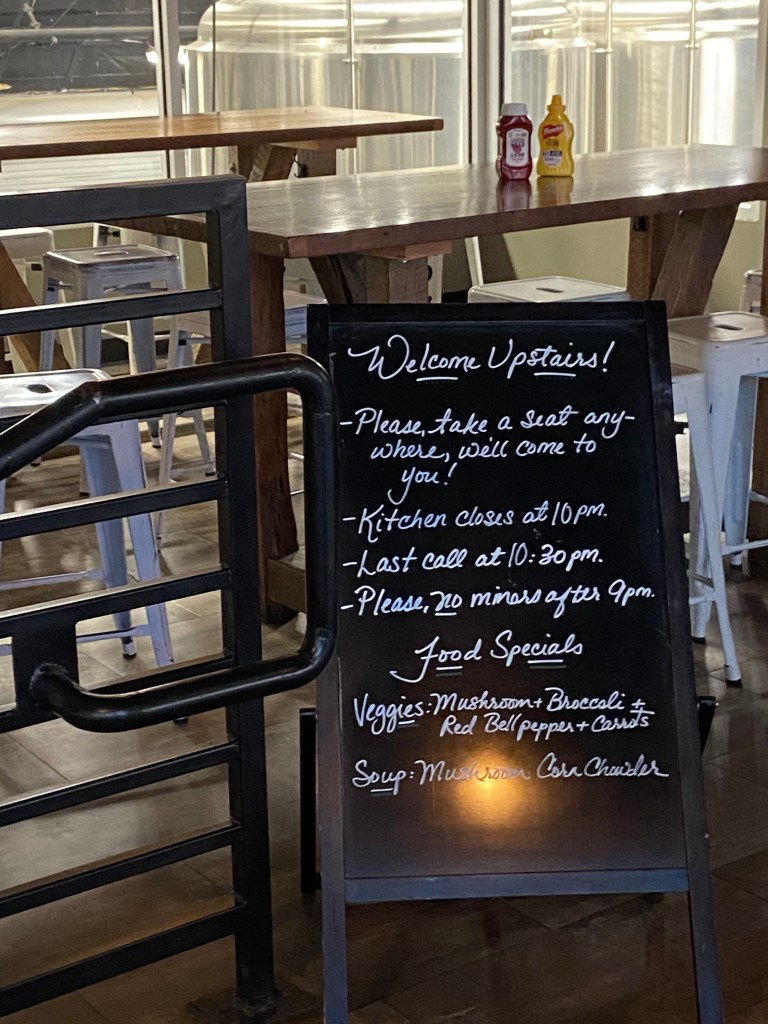 Welcome Upstairs!
-Please, take a seat any-
where, we'll come to
you!
-Kitchen closes at 10pm.
-Last call at 10:30pm.
-Please, no minors after 9pm.
Food Specials
Veggies: Mushroom + Broccoli +
Red Bell pepper + Carrots
Soup: Mushroom Corn Chowder